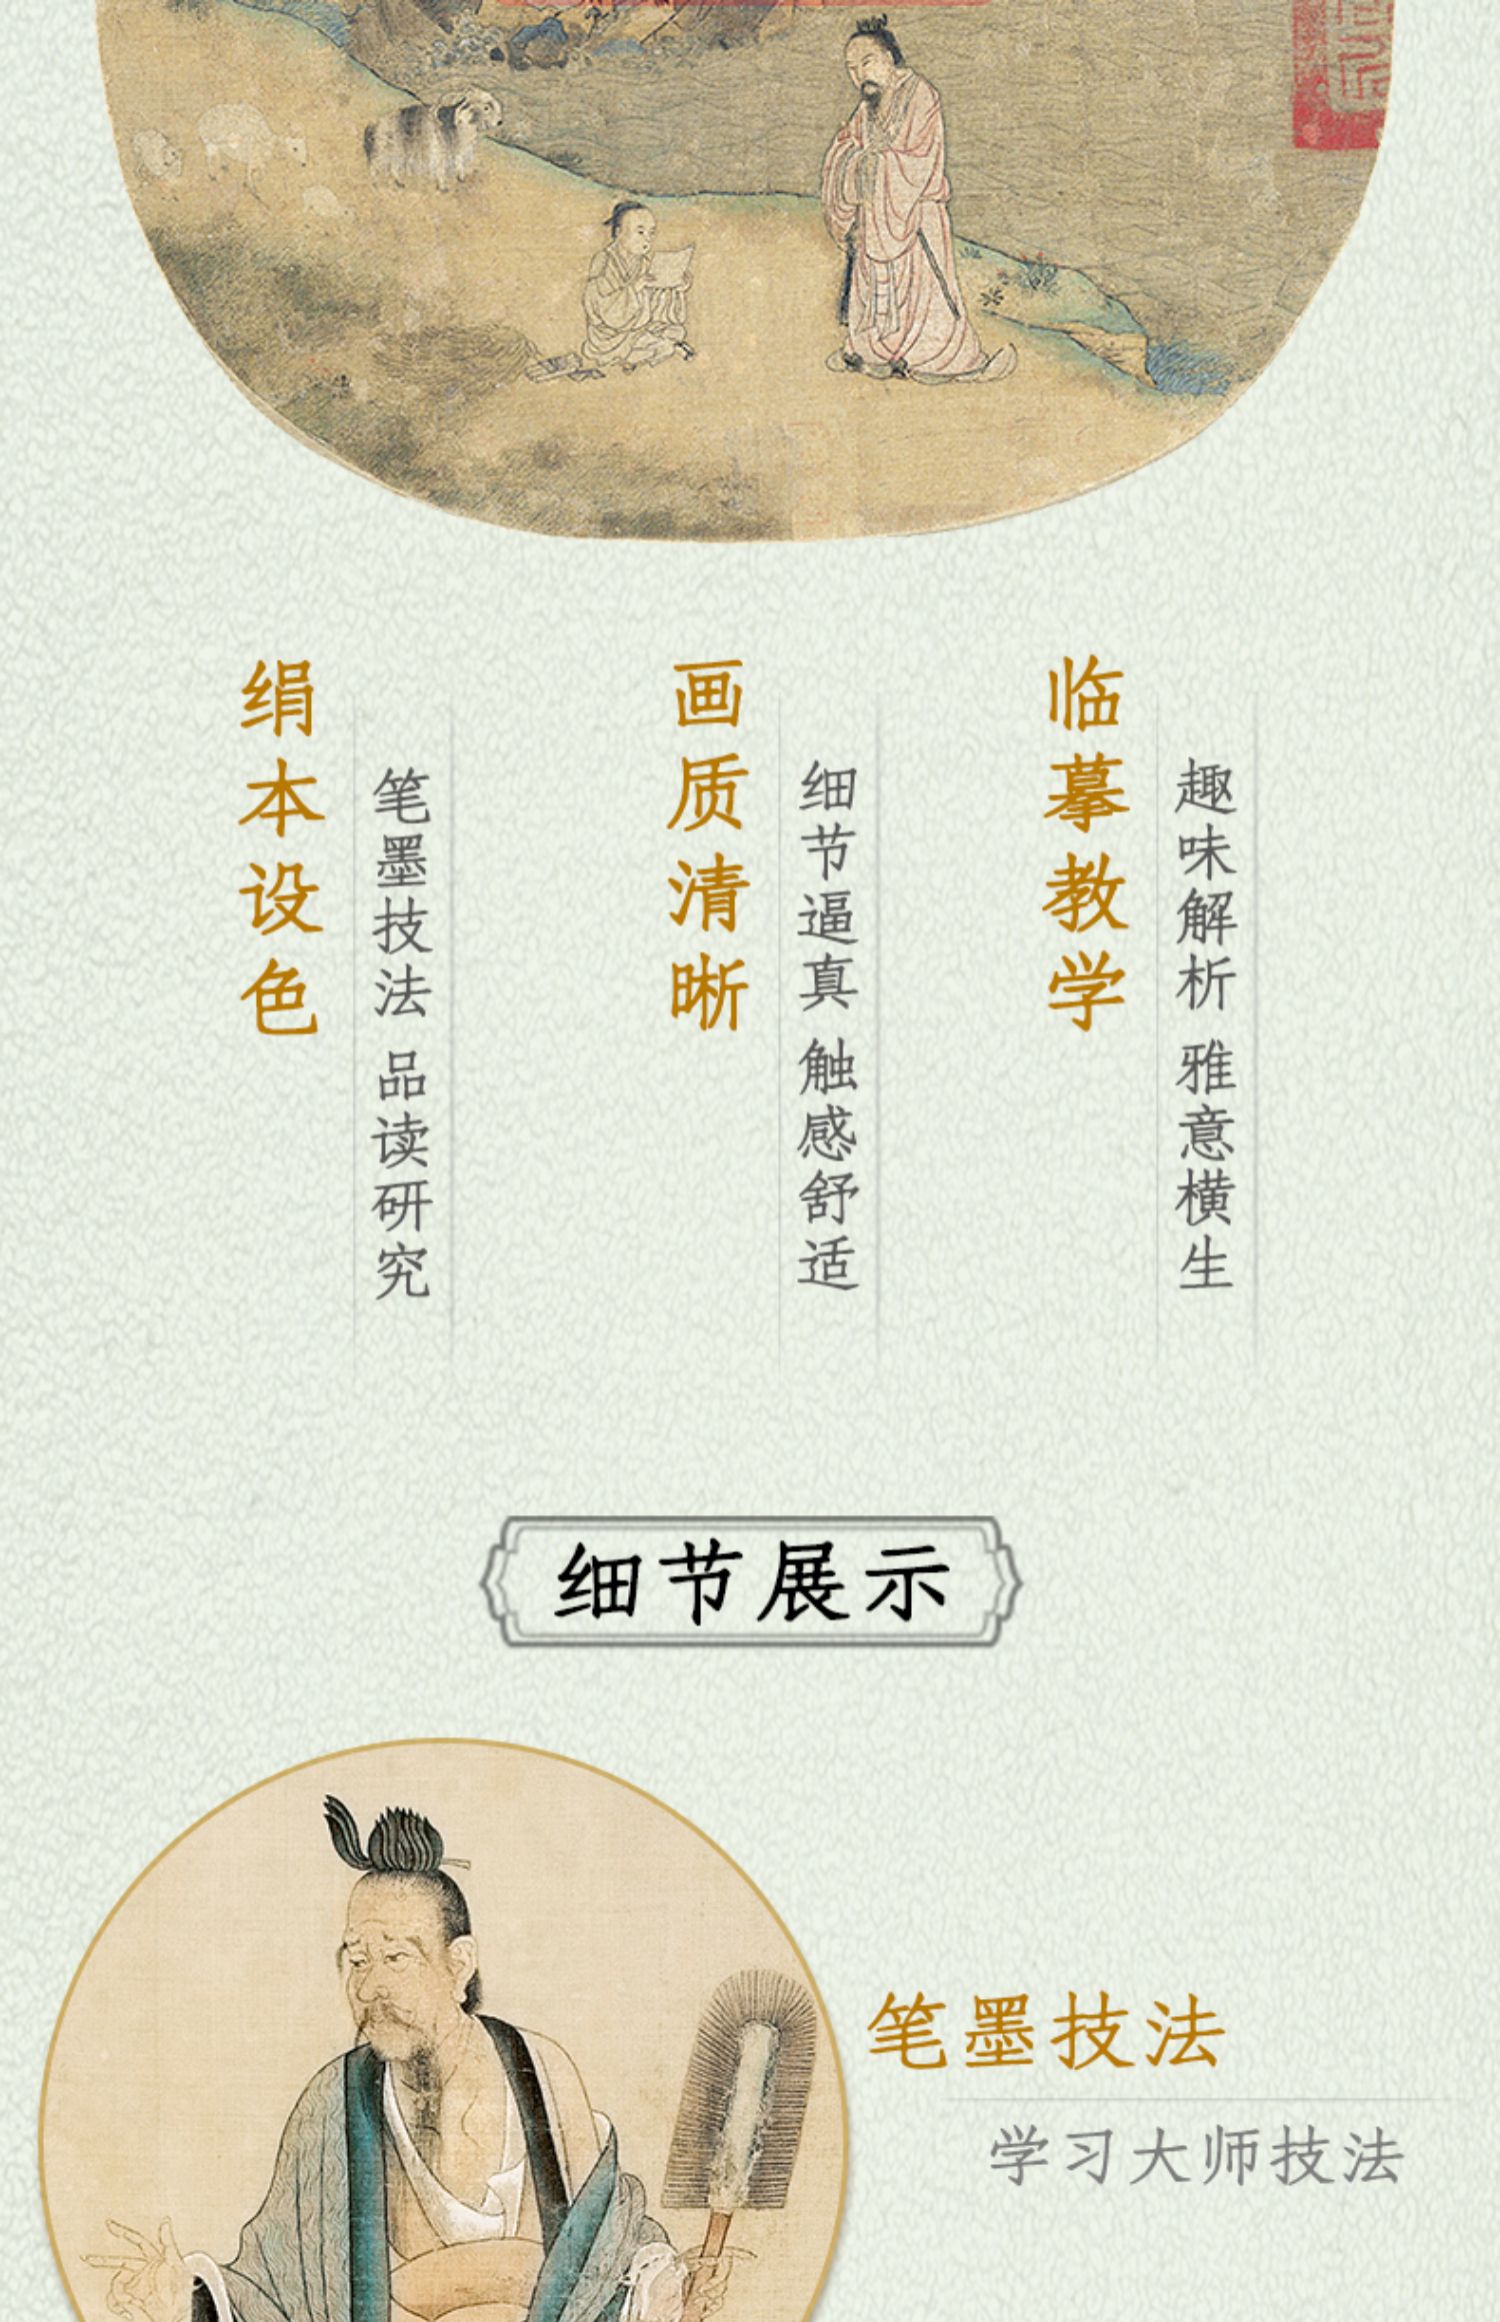 绢本设色
笔墨技法 品读研究
画质清晰
细节逼真 触感舒适
临摹教学
趣味解析 雅意横生
细节展示
笔墨技法
学习大师技法